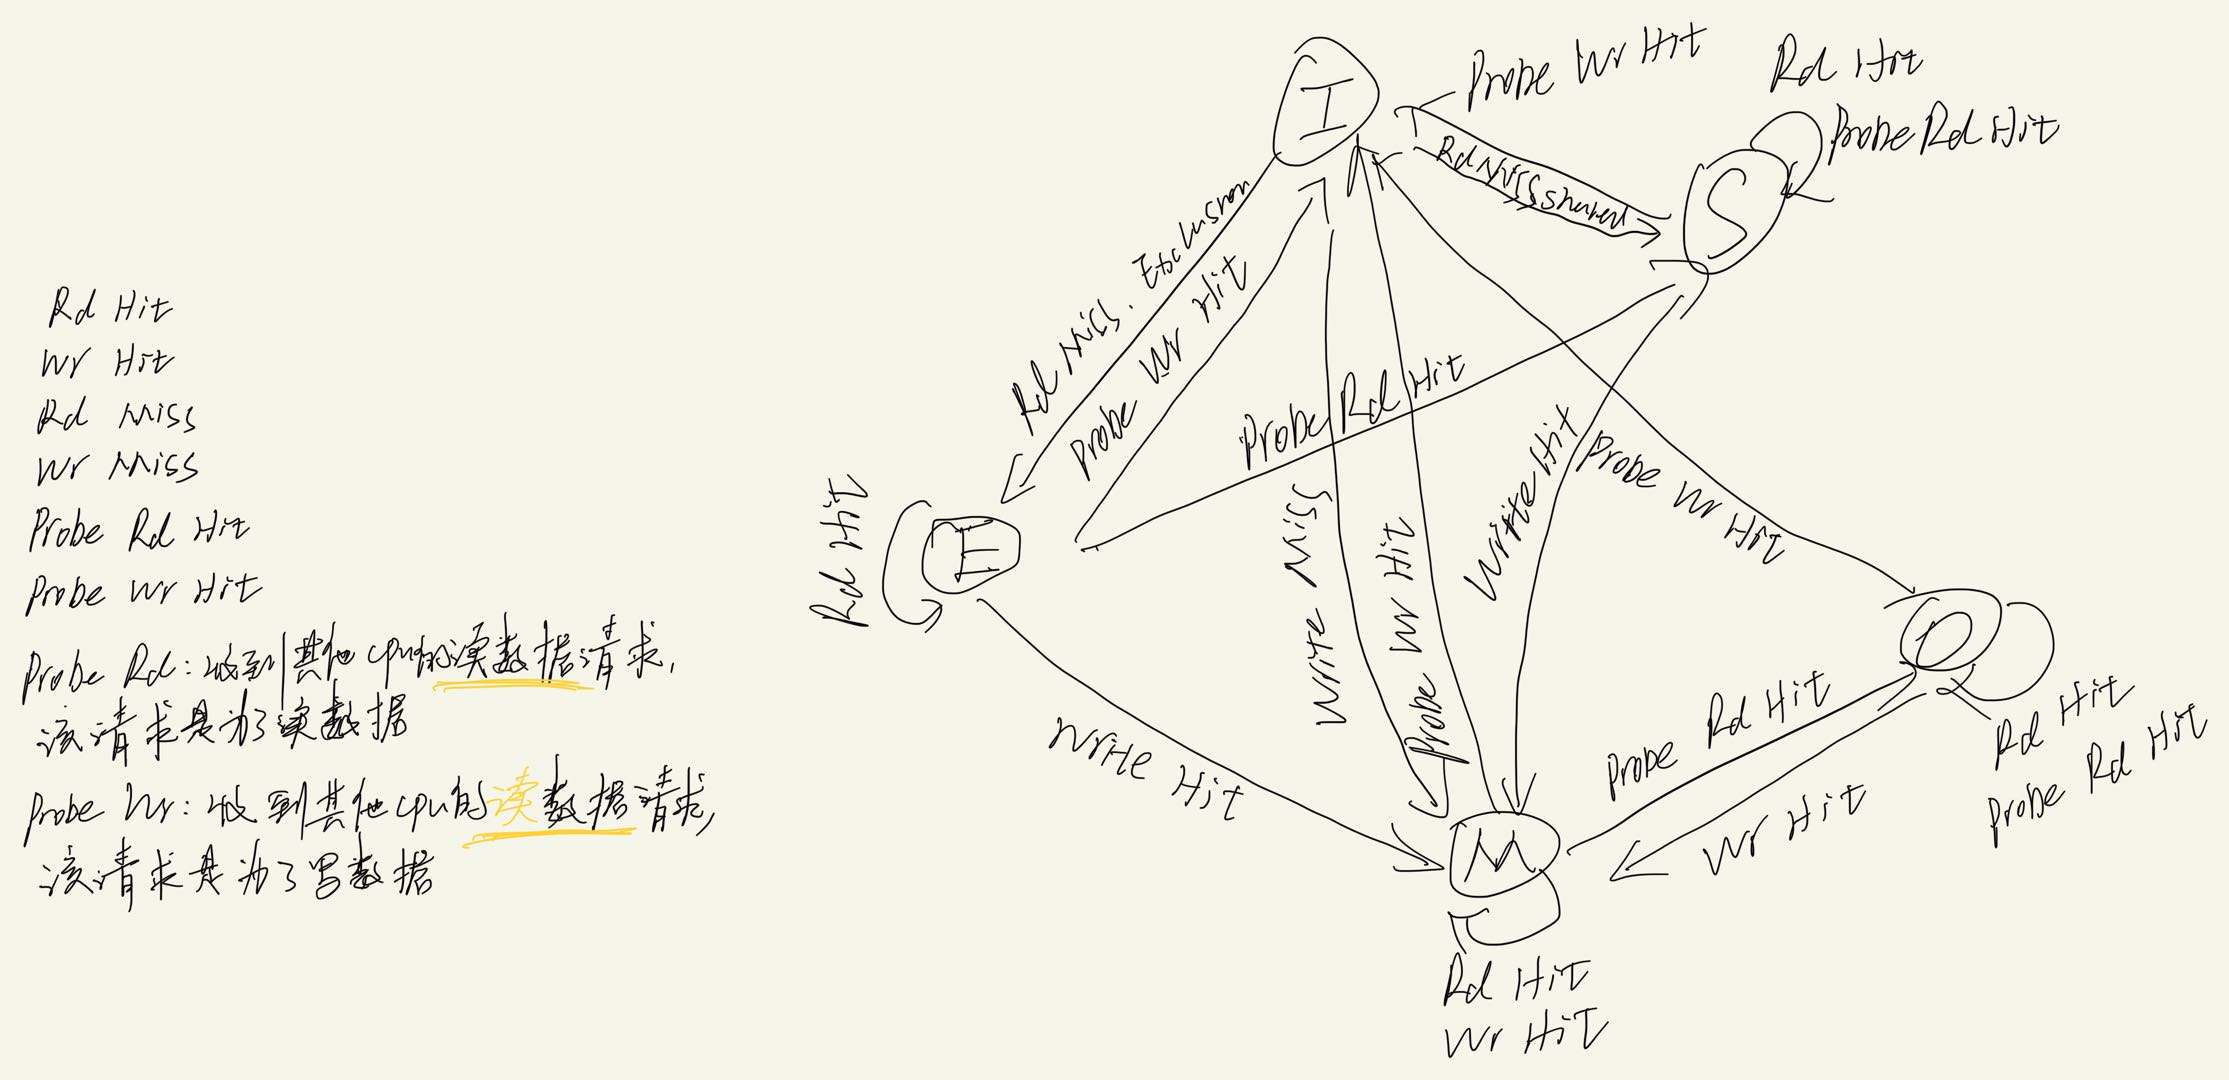 Rd Hit
Wr Hit
Rd Miss
Wr Miss
Probe Rd Hit
Probe Wr Hit
Probe Rd: 收到其他cpu的读数据请求,
该请求是为了读数据
Probe Wr: 收到其他cpu的读数据请求,
该请求是为了写数据
I
Probe Wr Hit
Rd Hit
Probe Rd Hit
S
Rd Miss shared
Rd Miss. Exclusion
Probe Wr Hit
Probe Rd Hit
Rd Hit
E
Write Miss
Probe Wr Hit
Write Hit
Probe Wr Hit
O
Rd Hit
Probe Rd Hit
Write Hit
Probe Rd Hit
Wr Hit
M
Rd Hit
Wr Hit